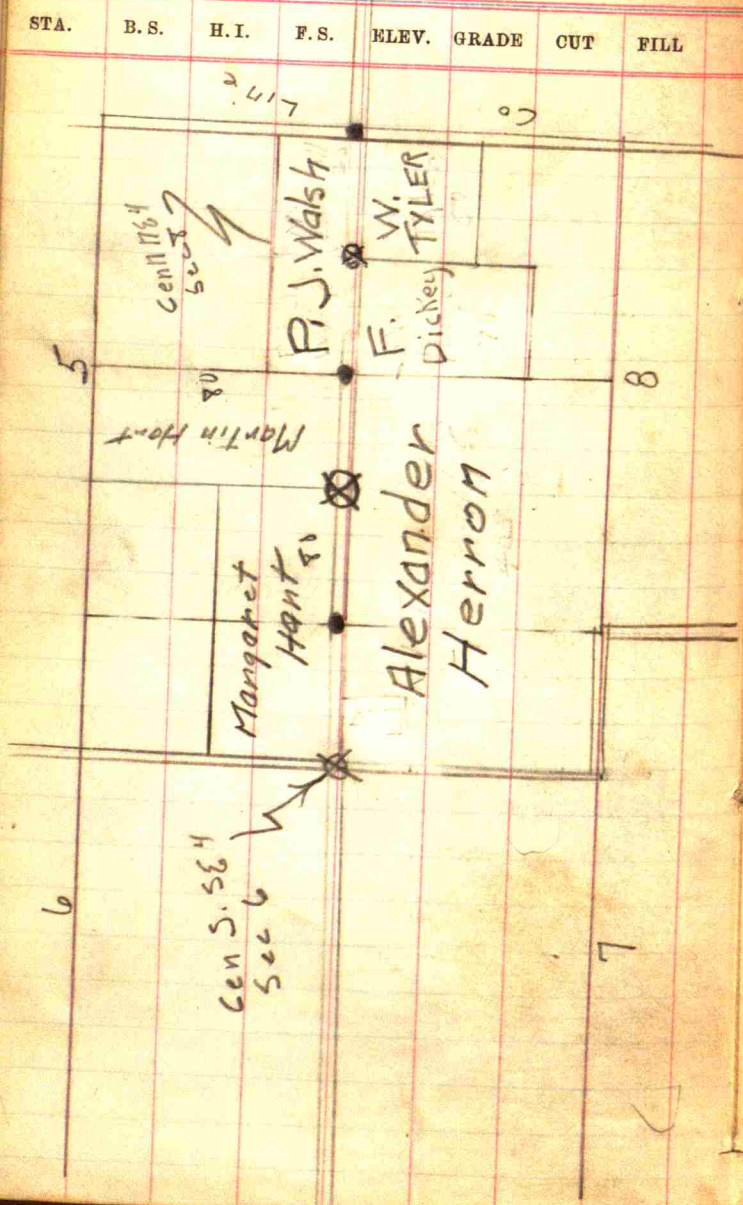 STA. B. S. H. I. F. S. ELEV. GRADE CUT FILL
Line
Co
5
8
6
7
Cen N NE 4
Sec 8
P. J. Walsh
W.
TYLER
F.
Dickey
Martin Hant
80
Margaret
Hant 80
Alexander
Herron
Cen S. SE 4
Sec 6